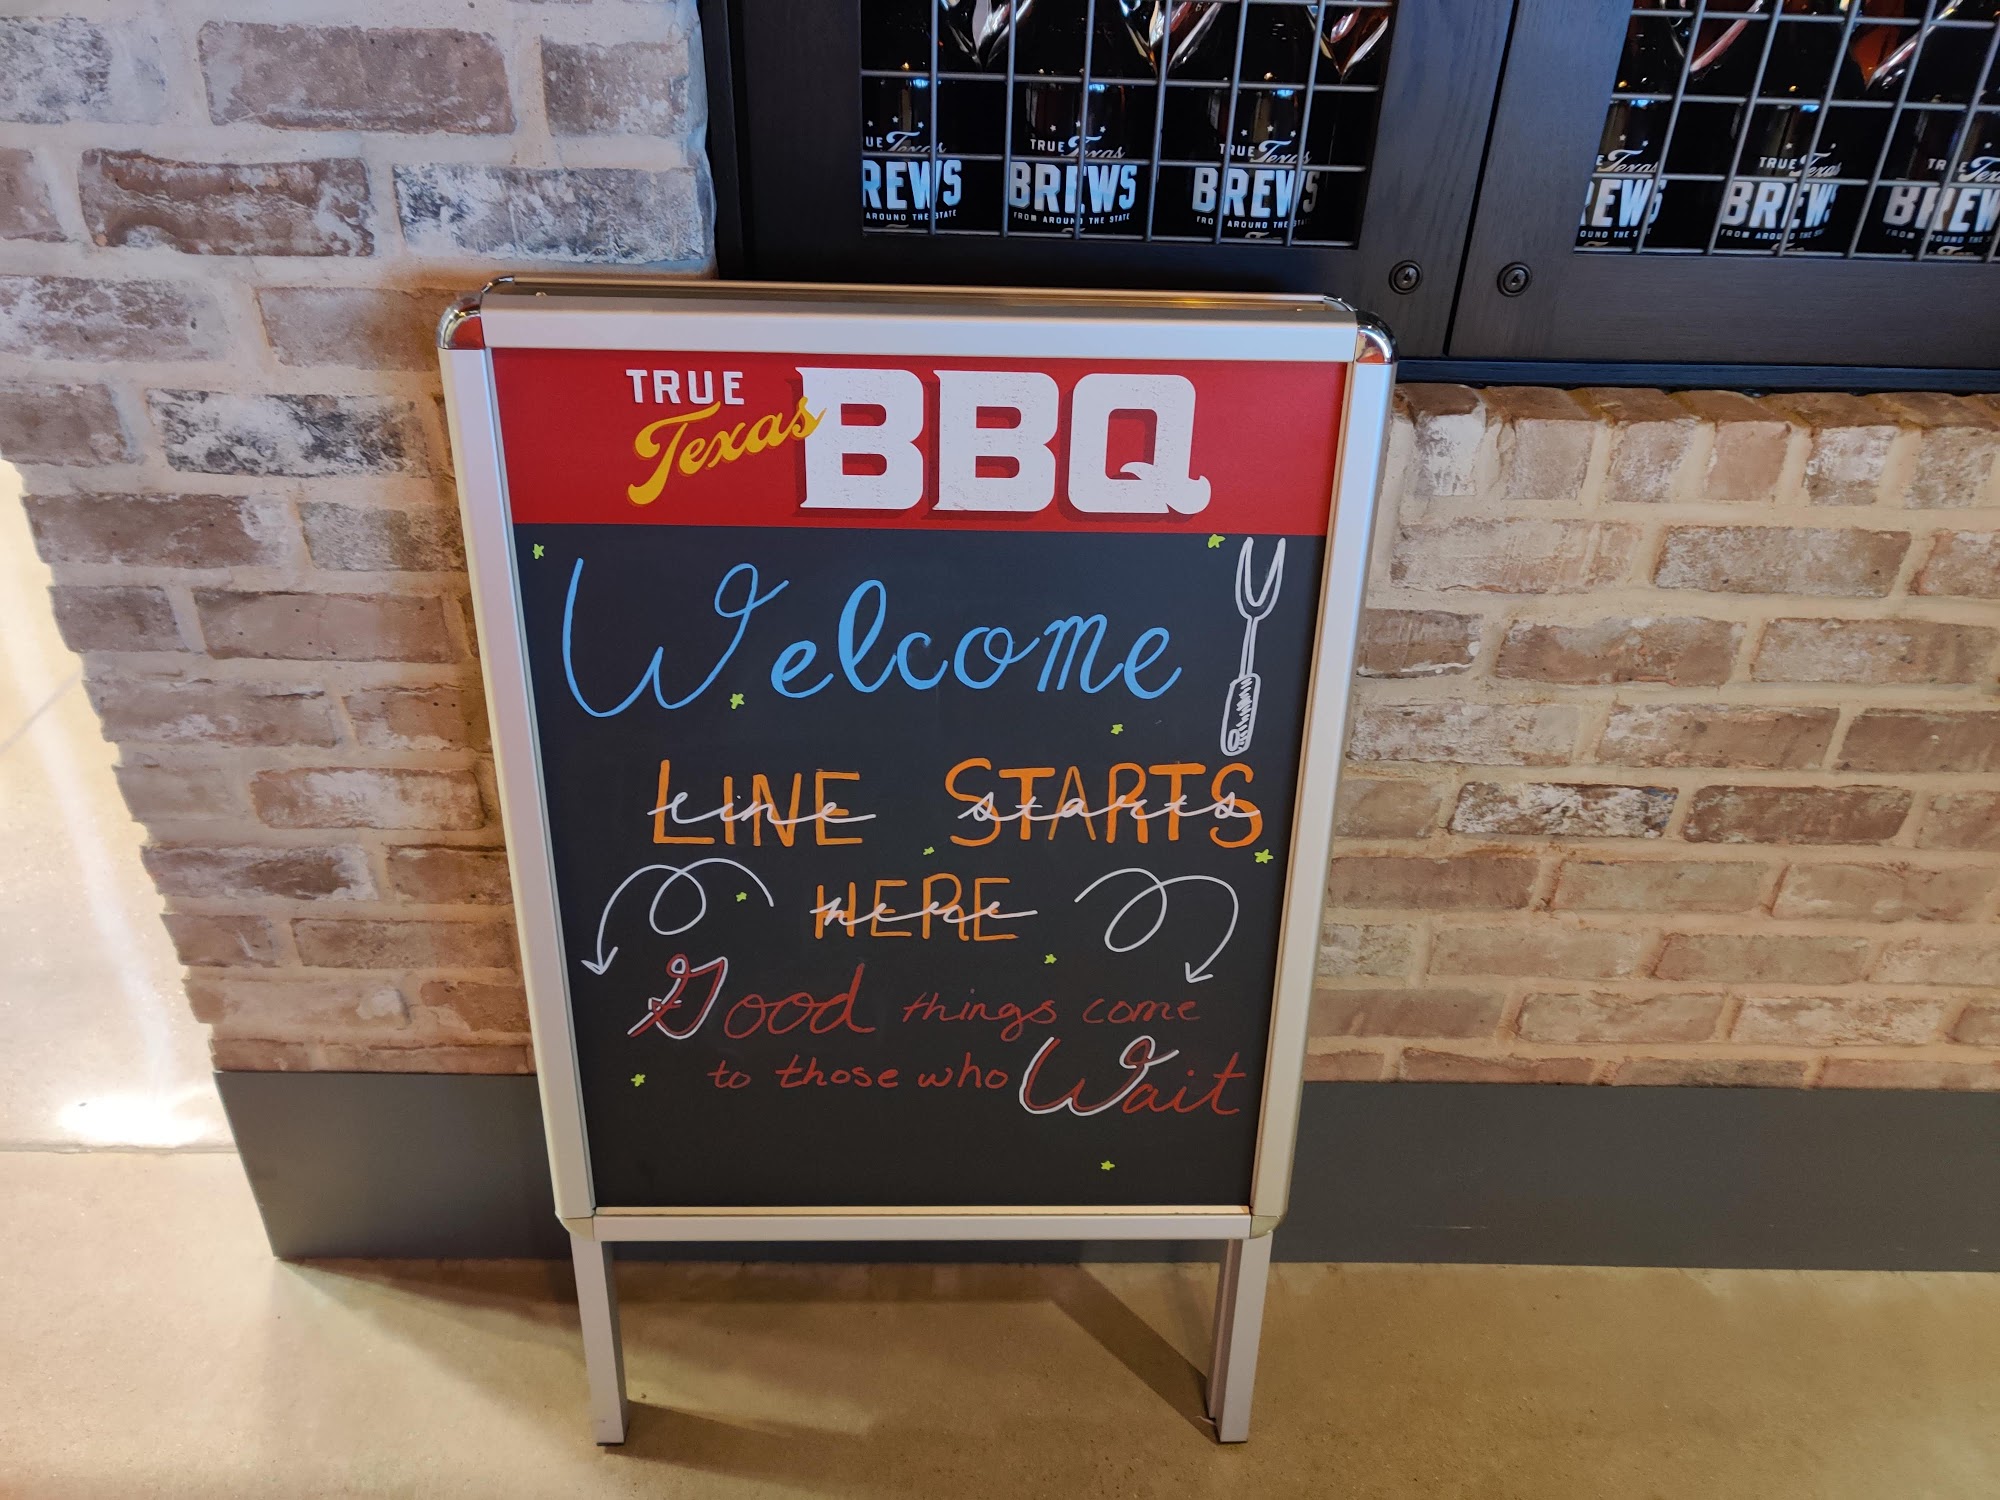 TRUE Texas BREWS
FROM AROUND THE STATE
TRUE Texas BREWS
FROM AROUND THE STATE
TRUE Texas BREWS
FROM AROUND THE STATE
TRUE Texas BREWS
FROM AROUND THE STATE
TRUE Texas BBQ
Welcome
LINE STARTS
line starts
HERE
here
Good things come
to those who Wait